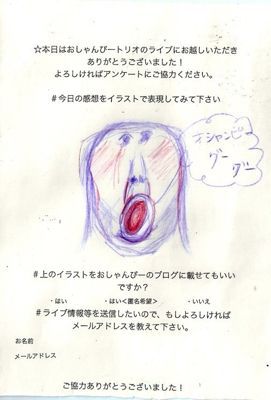 ☆本日はおしゃんぴートリオのライブにお越しいただき
ありがとうございました！
よろしければアンケートにご協力ください。
＃今日の感想をイラストで表現してみて下さい
オシャンピー
グー
グー
＃上のイラストをおしゃんぴーのブログに載せてもいい
ですか？
・はい　・はい＜匿名希望＞　・いいえ
＃ライブ情報等を送信したいので、もしよろしければ
メールアドレスを教えて下さい。
お名前
メールアドレス
ご協力ありがとうございました！